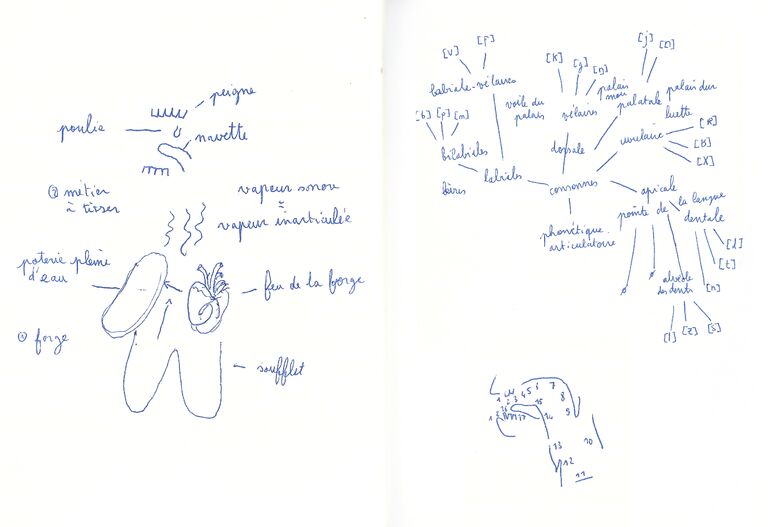 peigne
poulie
navette
② métier
à tisser
vapeur sonor
=
vapeur inarticulée
poterie pleine
d'eau
feu de la forge
① forge
soufflet
[v] [f]
labiale-vélaires
[b] [p] [m]
bilabiales
lèvres
labiales
[k] [g] [ŋ]
voile du
palais
vélaires
dorsale
[j] [ɲ]
palais
mou
palatale
palais dur
luette
uvulaire
[R]
[ʁ]
[X]
consonnes
phonétique
articulatoire
apicale
pointe de la langue
dentale
[d]
[t]
[n]
ø ø
alvéole
des dents
[l] [z] [s]
1 2 3 4 5 6 7
8
9
10
11
12
13
14
15